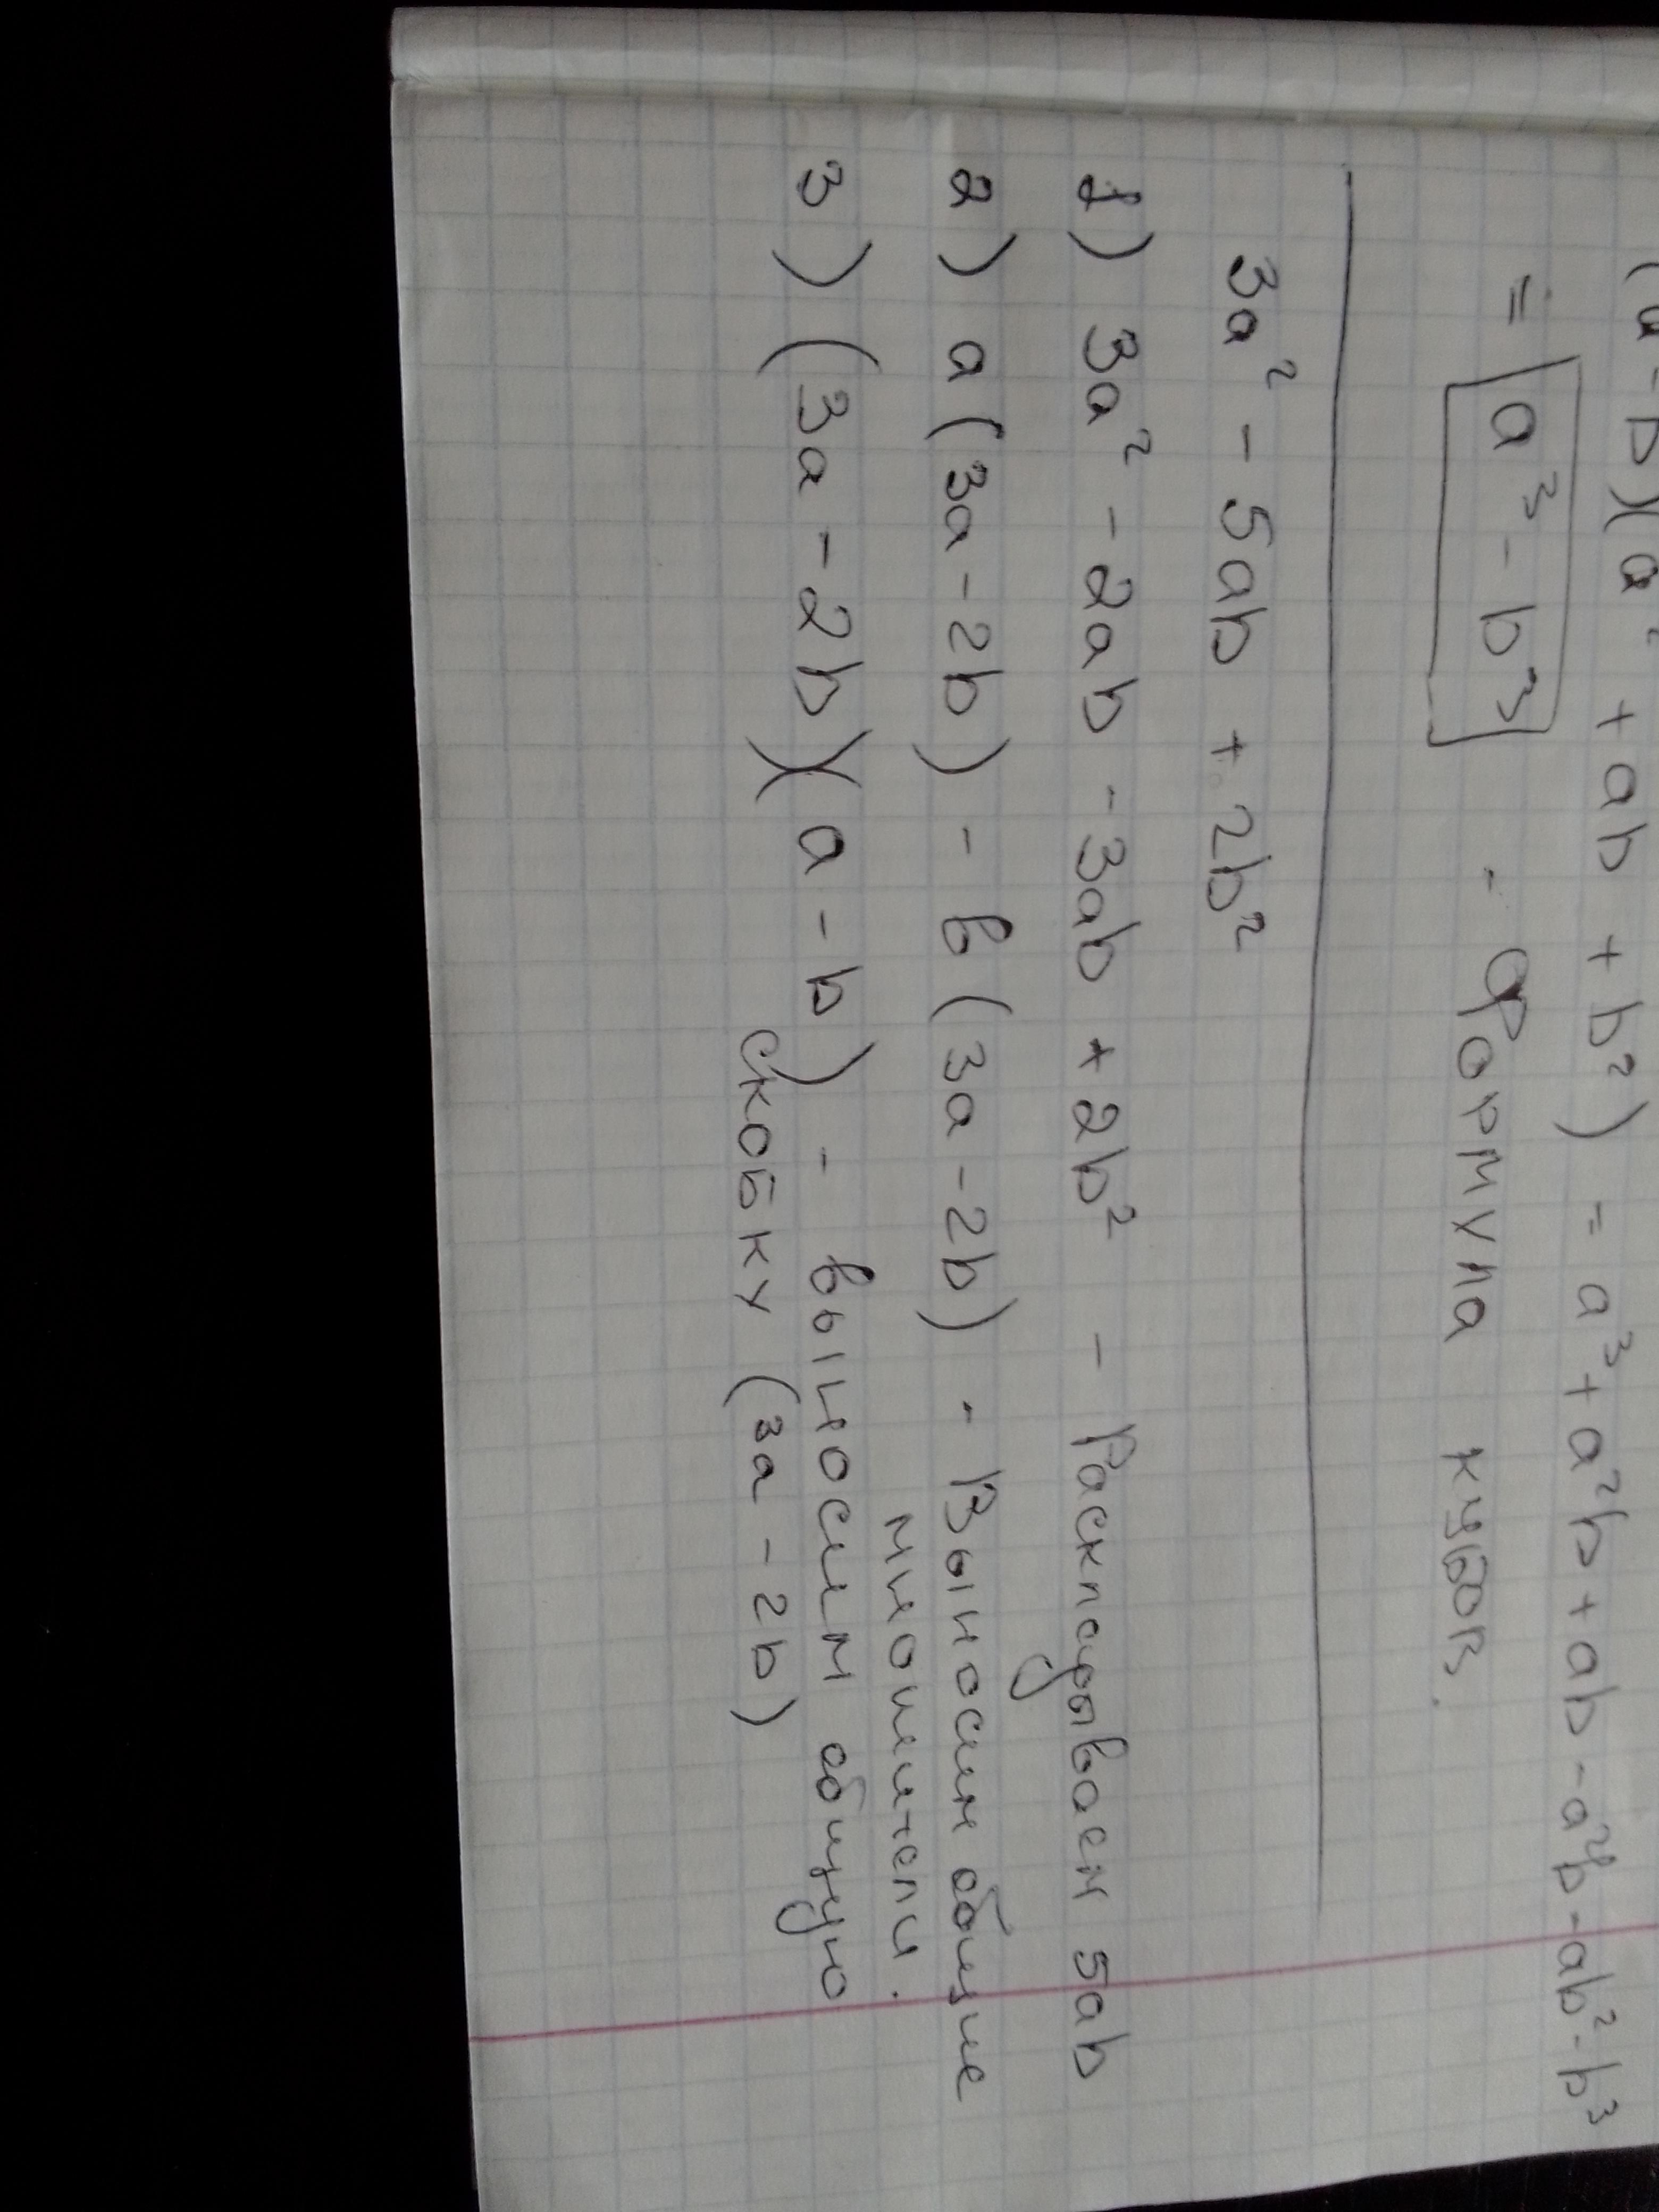 (a - b)(a² + ab + b²) = a³ + a²b + ab - a²b - ab² - b³
= a³ - b³ - Формула кубов.
3a² - 5ab + 2b²
1) 3a² - 2ab - 3ab + 2b² - Раскладываем 5ab
2) a(3a - 2b) - в(3a - 2b) - Выносим общие
множители.
3) (3a - 2b)(a - b) - выносим общую
скобку (3a - 2b)